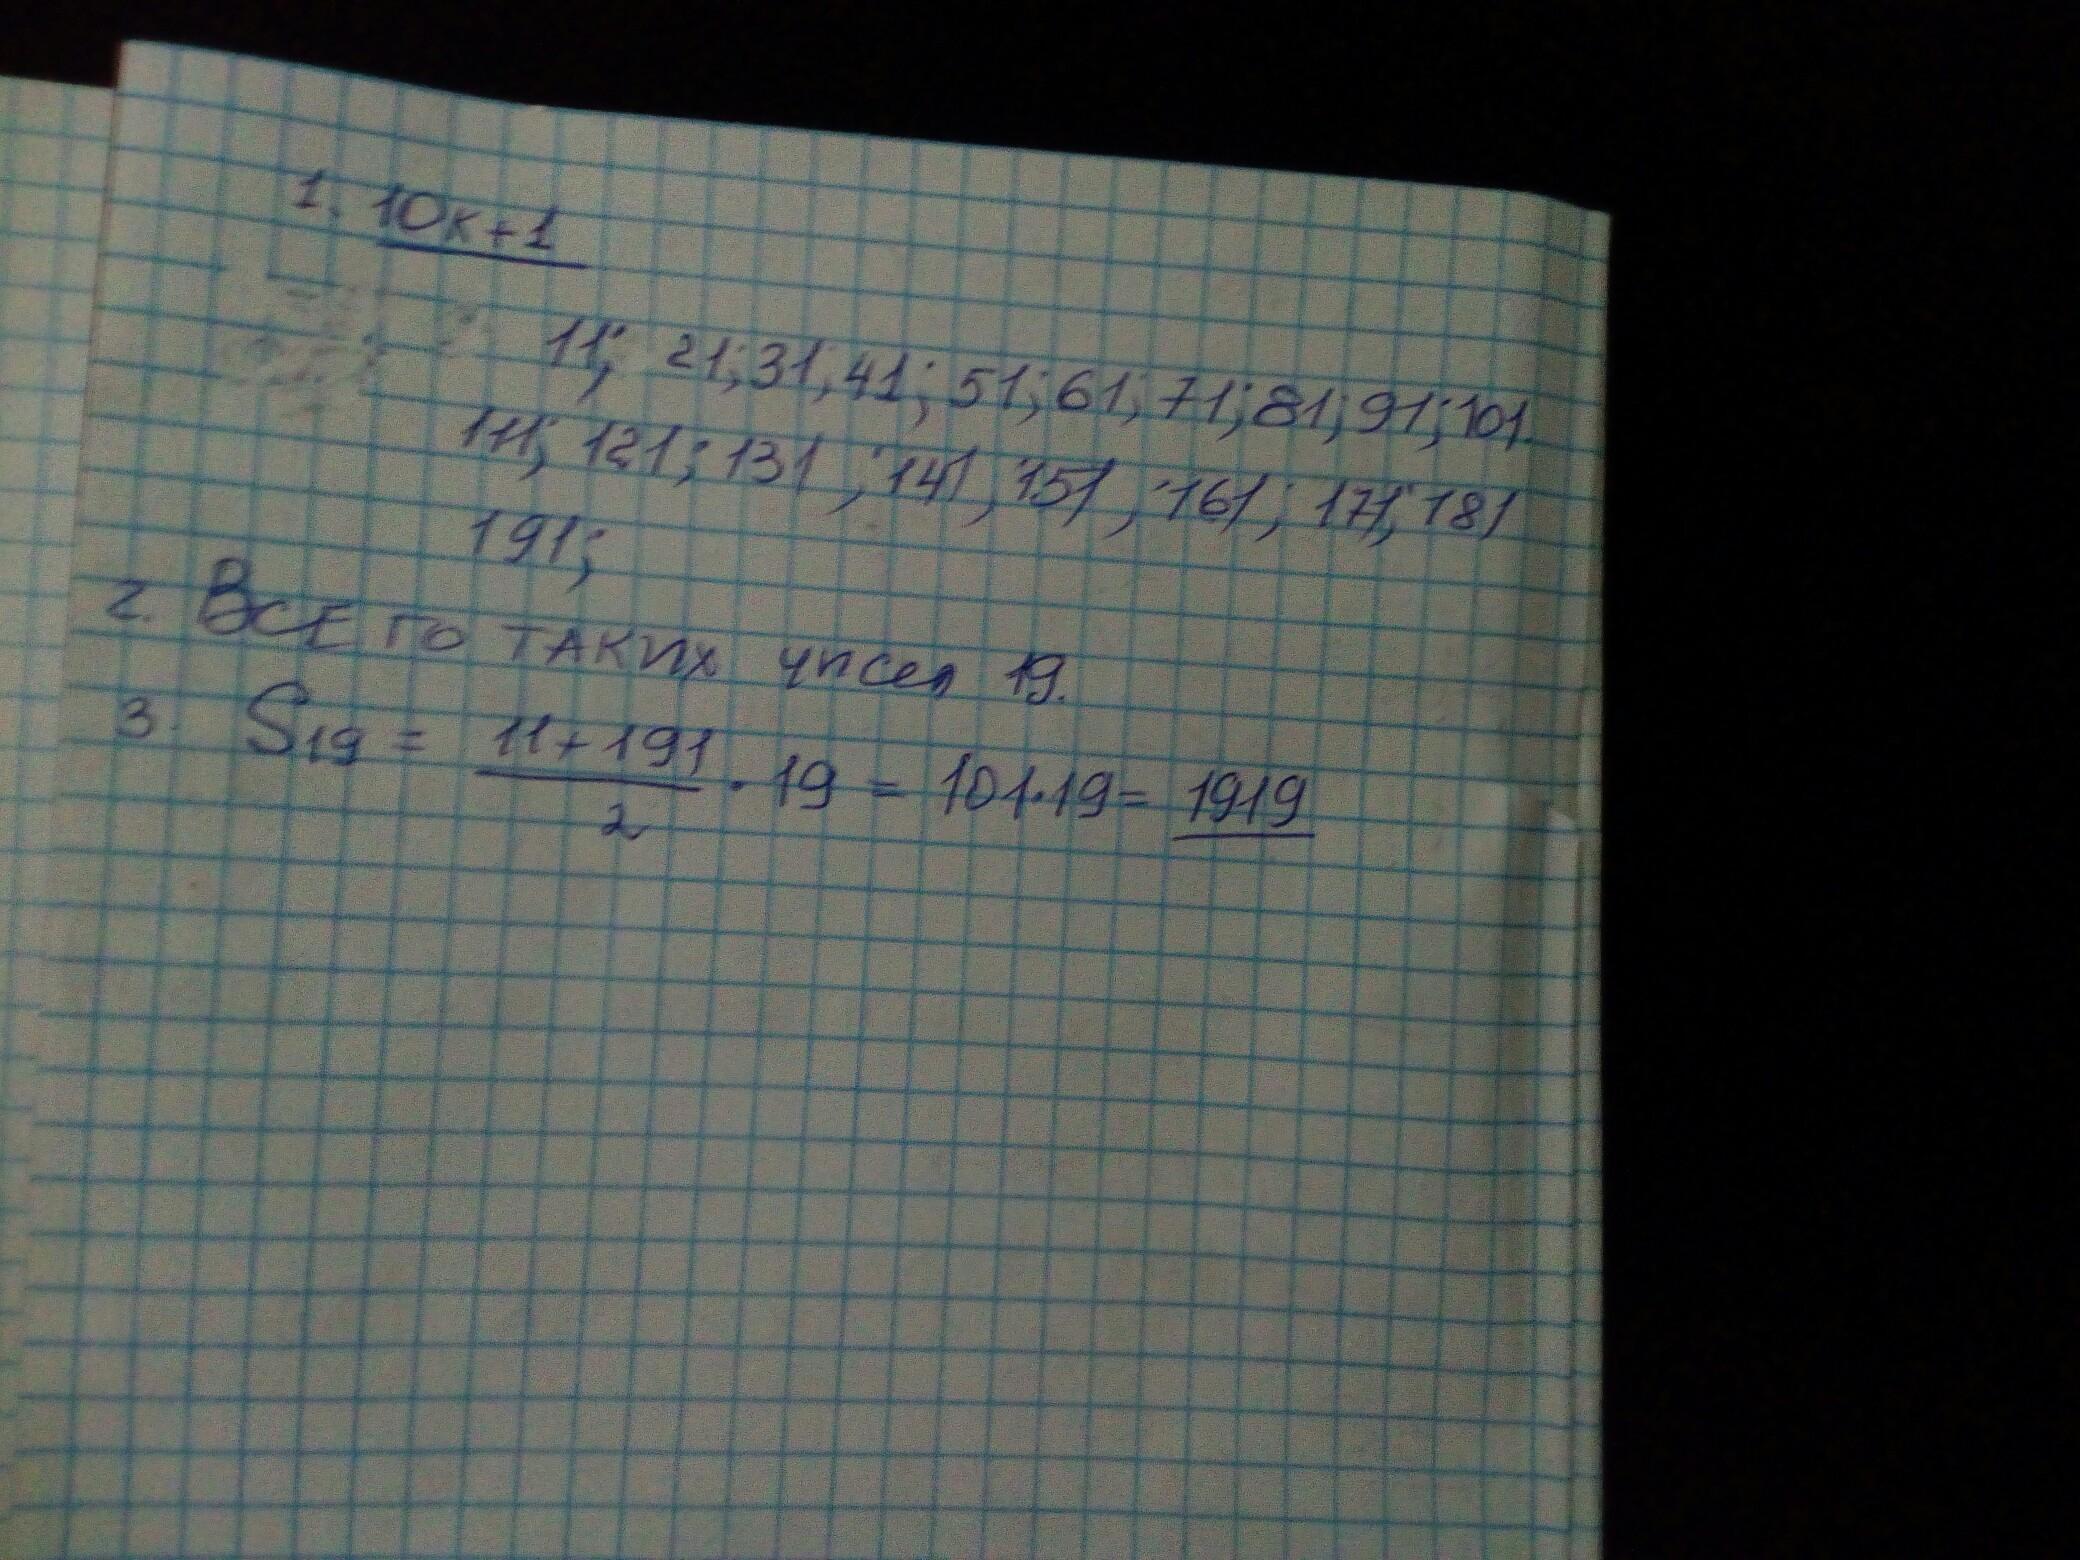 1. 10к+1
11; 21; 31, 41; 51; 61; 71; 81; 91; 101.
111; 121; 131; 141; 151; 161; 171; 181
191;
2. ВСЕГО ТАКИХ чисел 19.
3. S19 = 11+191 / 2 · 19 = 101·19 = 1919